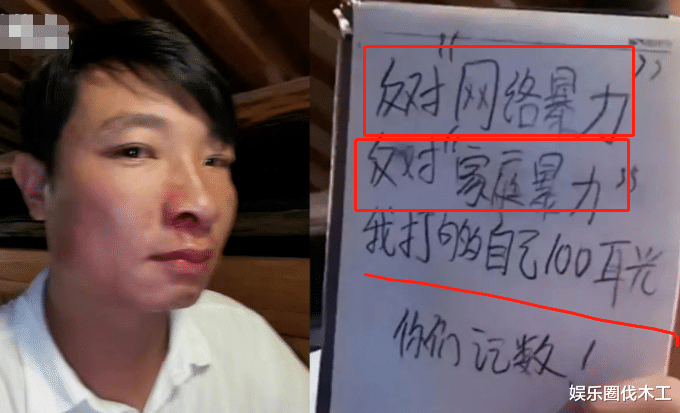 反对“网络暴力”
反对“家庭暴力”
我打的自己100耳光
你们记数！
娱乐圈伐木工